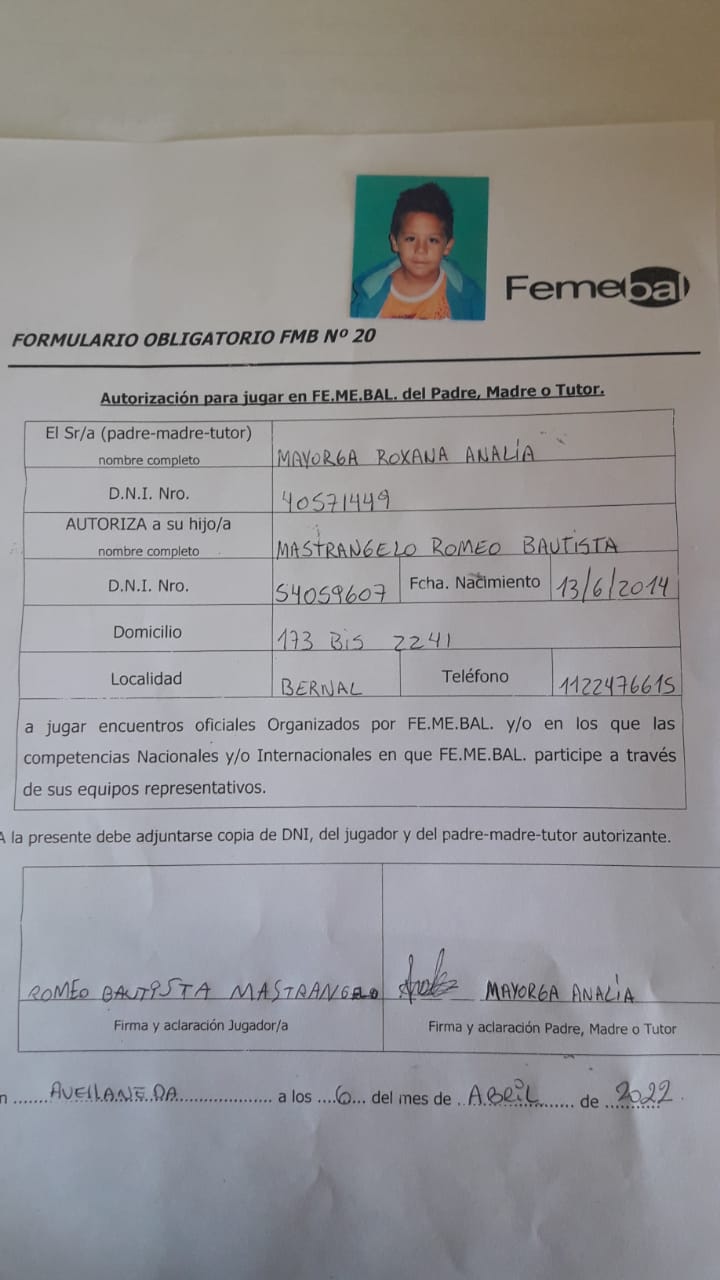 Femebal
FORMULARIO OBLIGATORIO FMB Nº 20
Autorización para jugar en FE.ME.BAL. del Padre, Madre o Tutor.
El Sr/a (padre-madre-tutor)
nombre completo
MAYORGA ROXANA ANALÍA
D.N.I. Nro.
40571449
AUTORIZA a su hijo/a
nombre completo
MASTRANGELO ROMEO BAUTISTA
D.N.I. Nro.
54059607
Fcha. Nacimiento
13/6/2014
Domicilio
173 Bis 2241
Localidad
BERNAL
Teléfono
1122476615
a jugar encuentros oficiales Organizados por FE.ME.BAL. y/o en los que las
competencias Nacionales y/o Internacionales en que FE.ME.BAL. participe a través
de sus equipos representativos.
A la presente debe adjuntarse copia de DNI, del jugador y del padre-madre-tutor autorizante.
ROMEO BAUTISTA MASTRANGELO
MAYORGA ANALÍA
Firma y aclaración Jugador/a
Firma y aclaración Padre, Madre o Tutor
n ....... AVELLANEDA ................... a los ....6... del mes de ..ABRIL....... de ..2022.